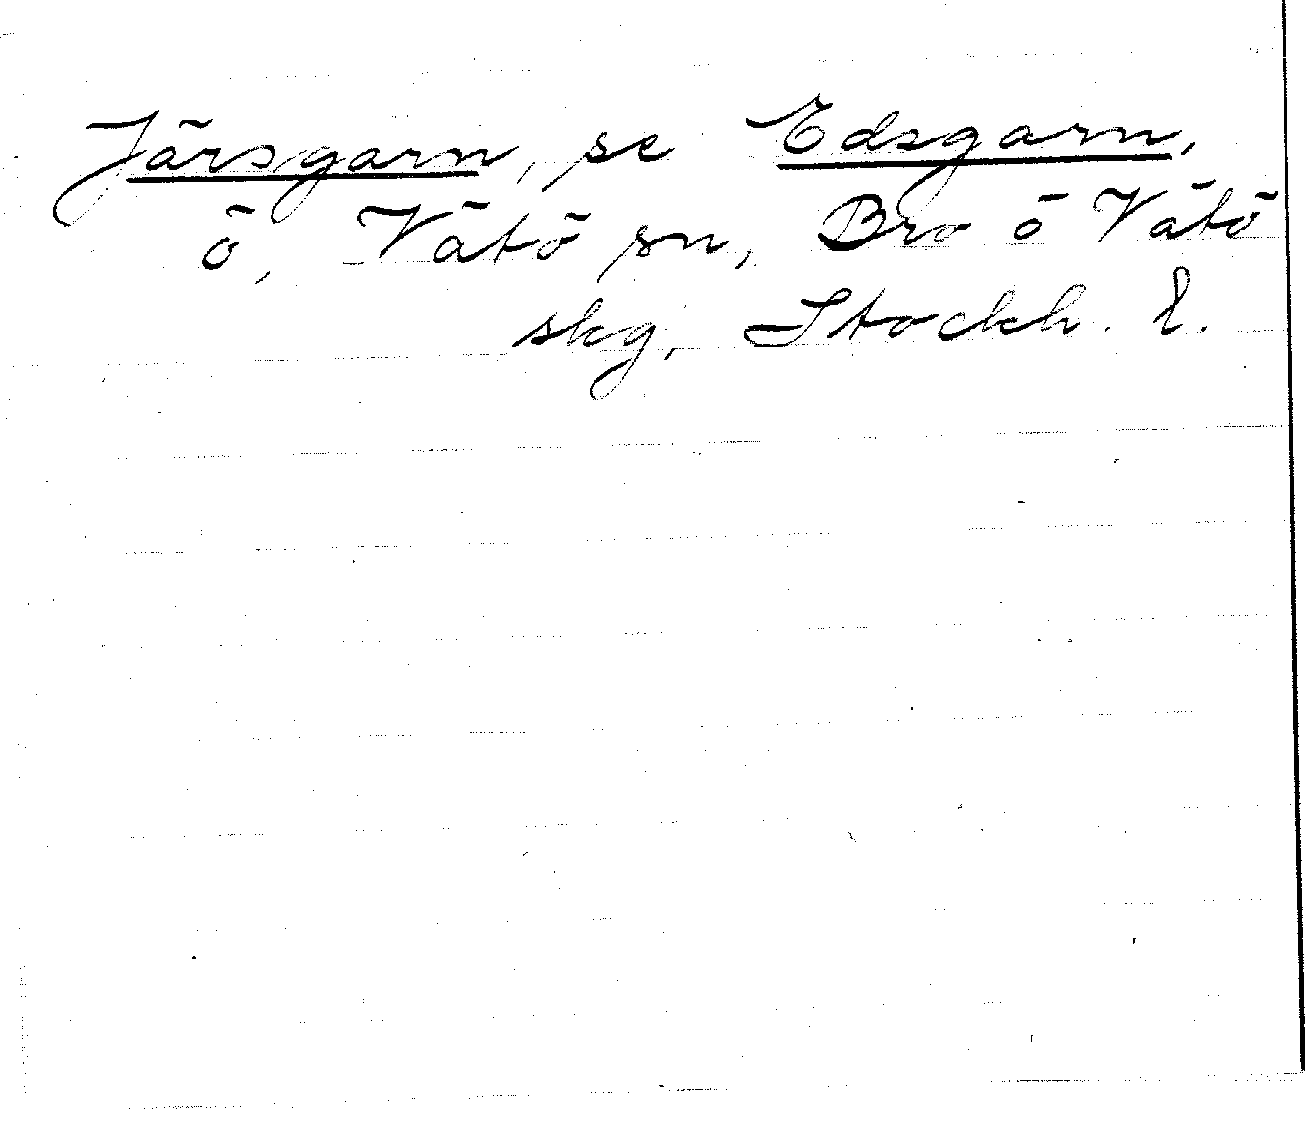 Järsgarn, se Edsgarn,
ö, Vätö sn, Bro o Vätö
skg, Stockh. l.